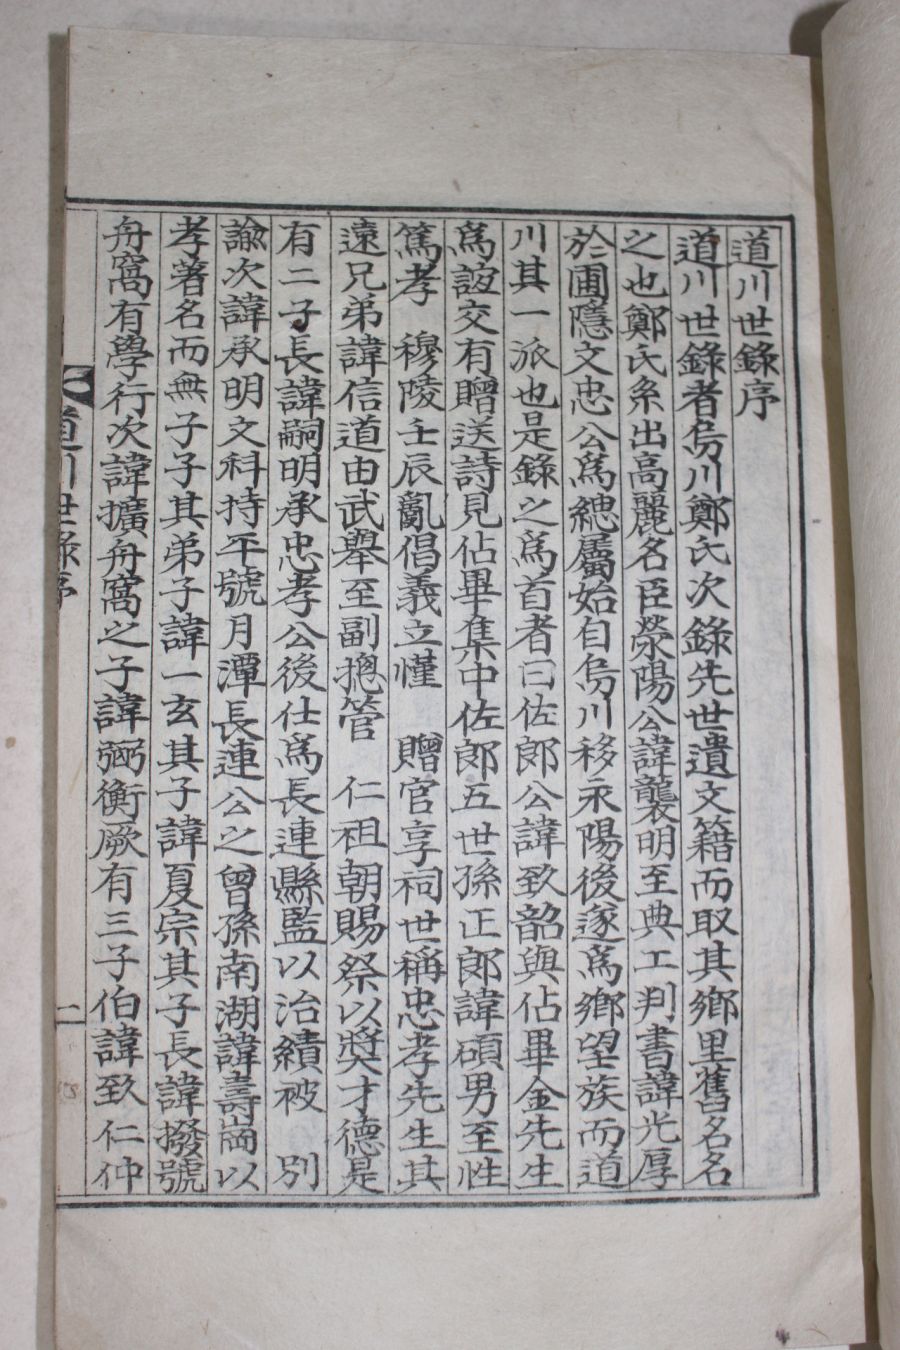 道川世錄序
道川世錄者烏川鄭氏次錄先世遺文籍而取其鄉里舊名名
之也鄭氏系出高麗名臣滎陽公諱襲明至典工判書諱光厚
於圃隱文忠公爲緦屬始自烏川移永陽後遂爲鄉望族而道
川其一派也是錄之爲首者曰佐郎公諱致韶與佔畢金先生
爲誼交有贈送詩見佔畢集中佐郎五世孫正郎諱碩男至性
篤孝 穆陵壬辰亂倡義立懂 贈官享祠世稱忠孝先生其
遠兄弟諱信道由武擧至副摠管 仁祖朝賜祭以奬才德是
有二子長諱嗣明承忠孝公後仕爲長連縣監以治績被 別
諭次諱承明文科持平號月潭長連公之曾孫南湖諱壽崗以
孝著名而無子子其弟子諱一玄其子諱夏宗其子長諱撥號
舟窩有學行次諱擴舟窩之子諱弼衡厥有三子伯諱致仁仲
道川世錄序
一